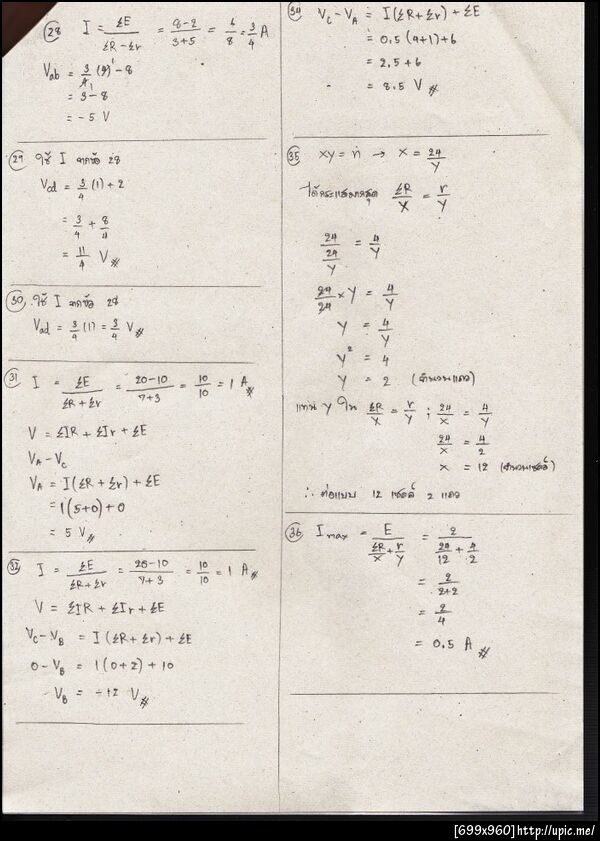 28 I = ΣE/(ΣR-Σr) = (8-2)/(3+5) = 6/8 = 3/4 A
Vab = 3/4 (4)¹ - 8
= 3 - 8
= -5 V
29 ใช้ I จากข้อ 28
Vad = 3/4 (1) + 2
= 3/4 + 8/4
= 11/4 V #
30 ใช้ I จากข้อ 28
Vad = 3/4 (1) = 3/4 V #
31 I = ΣE/(ΣR+Σr) = (20-10)/(7+3) = 10/10 = 1 A #
V = ΣIR + ΣIr + ΣE
VA - VC
VA = I(ΣR + Σr) + ΣE
= 1(5+0) + 0
= 5 V #
32 I = ΣE/(ΣR+Σr) = (20-10)/(7+3) = 10/10 = 1 A #
V = ΣIR + ΣIr + ΣE
VC - VB = I(ΣR + Σr) + ΣE
0 - VB = 1(0+2) + 10
VB = -12 V #
34 VC - VA = I(ΣR + Σr) + ΣE
= 0.5 (4+1) + 6
= 2.5 + 6
= 8.5 V #
35 xy = n → x = 24/y
ได้กระแสมากสุด ΣR/x = r/y
24/(24/y) = 4/y
24/24 × y = 4/y
y = 4/y
y² = 4
y = 2 (จำนวนแถว)
แทน y ใน ΣR/x = r/y ; 24/x = 4/y
24/x = 4/2
x = 12 (จำนวนเซลล์)
∴ ต่อแบบ 12 เซลล์ 2 แถว
36 Imax = E/(ΣR/x + r/y) = 2/(24/12 + 4/2)
= 2/(2+2)
= 2/4
= 0.5 A #
[699x960]http://upic.me/